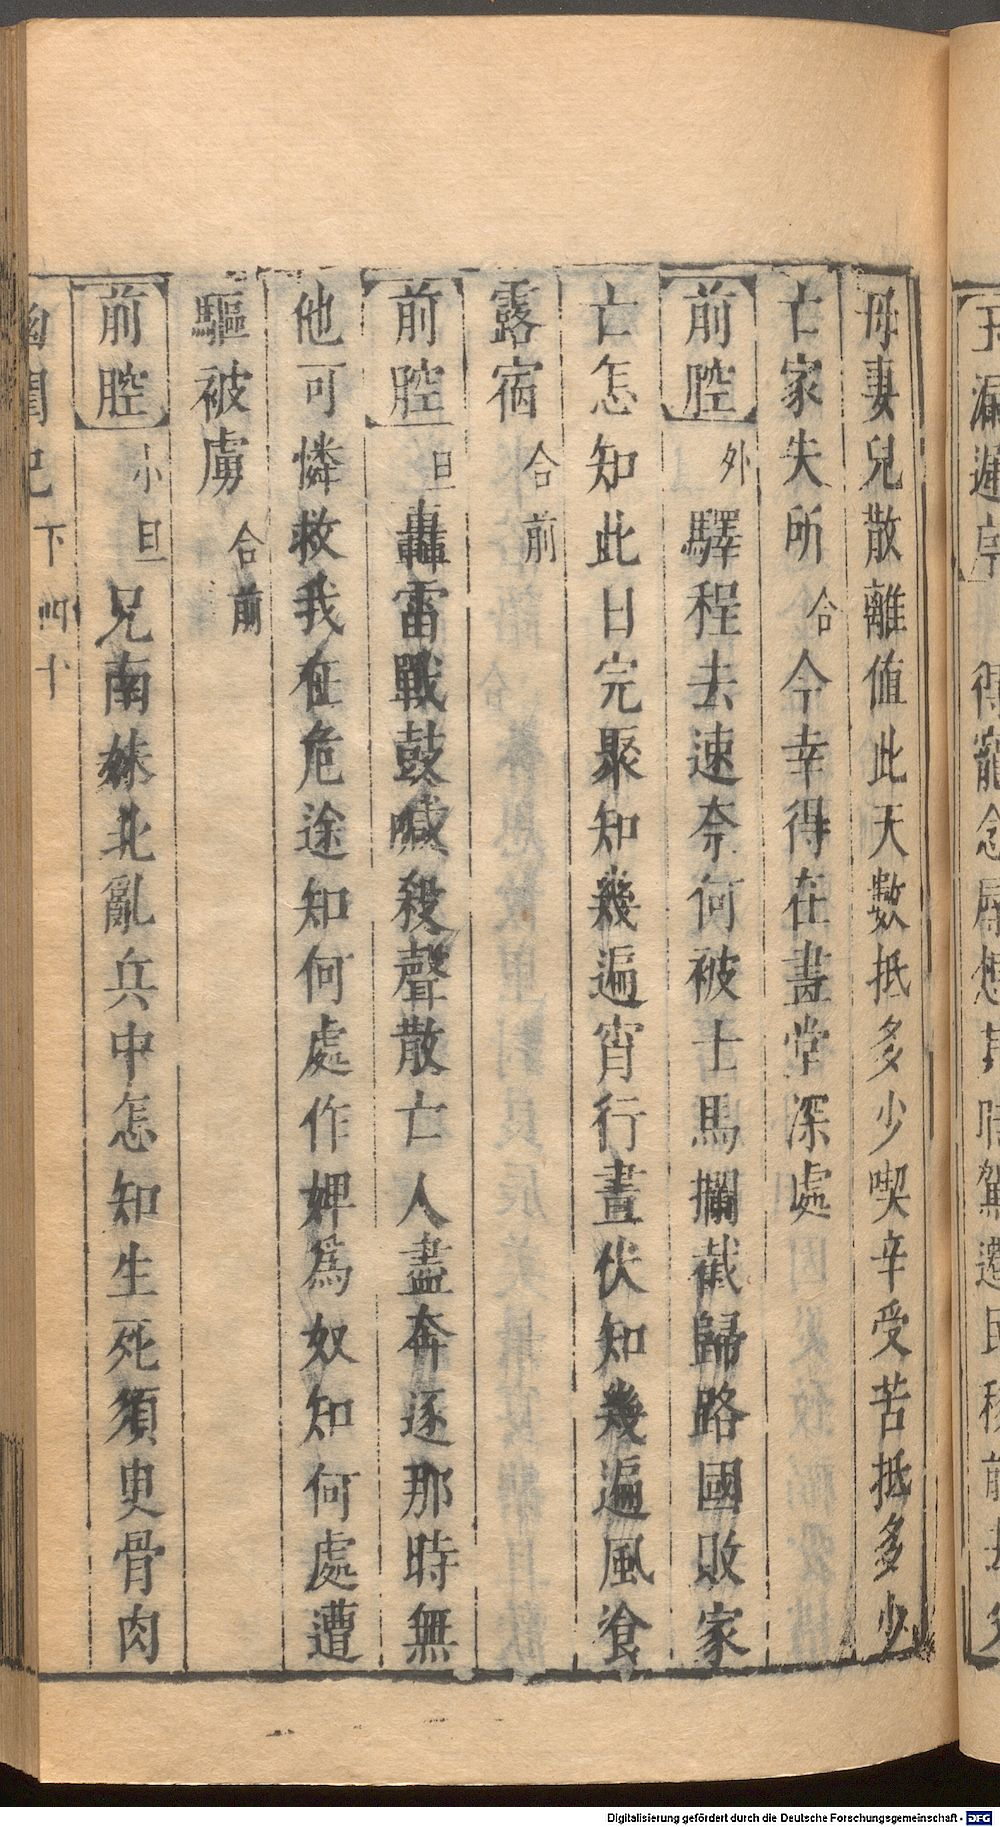 母妻兒散離值此天數抵多少喫辛受苦抵多少
亡家失所合今幸得在畫堂深處
前腔外驛程去速奈何被士馬攔截歸路國敗家
亡怎知此日完聚知幾遍宵行晝伏知幾遍風飡
露宿合前
前腔旦轟雷戰鼓喊殺聲散亡人盡奔逐那時無
他可憐救我在危途知何處作婢爲奴知何處遭
驅被虜合前
前腔小旦兄南妹北亂兵中怎知生死須臾骨肉
幽閨記 下 四十
Digitalisierung gefördert durch die Deutsche Forschungsgemeinschaft - DFG